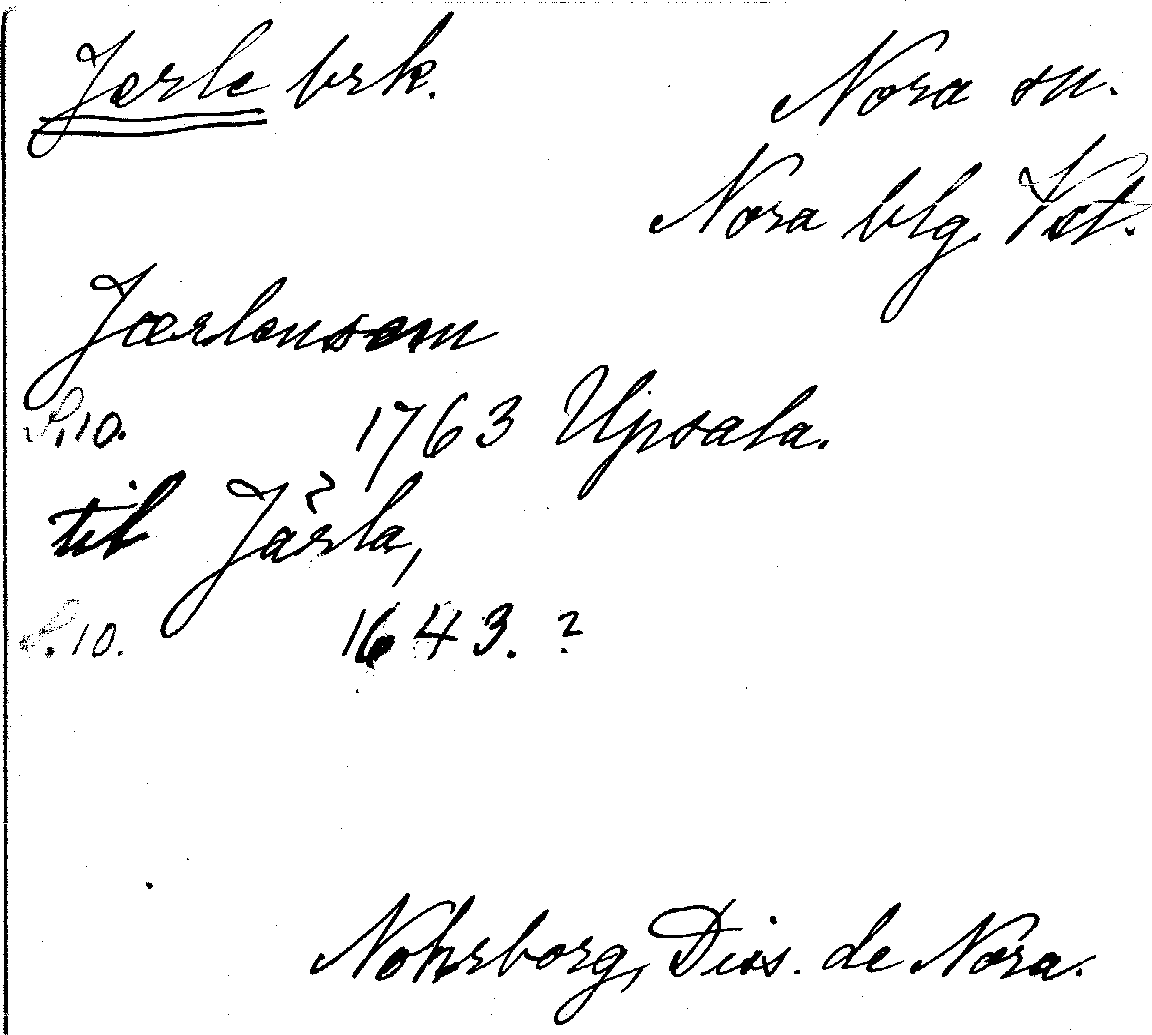 Jerle brk.
Nora sn.
Nora blg. Vst.
Jærlensem
S. 10. 1763 Upsala.
til Järla,
S. 10. 1643. ?
Nohrborg, Diss. de Nora.